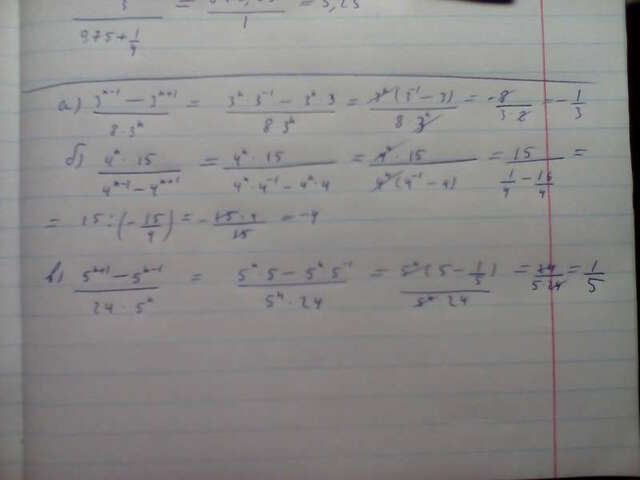 3 / (0,75+1/4) = / 1 = 3,25
а) (3^(n-1) - 3^(n+1)) / (8·3^n) = (3^n·3^(-1) - 3^n·3) / (8·3^n) = (3^n(3^(-1) - 3)) / (8·3^n) = -8 / (3·8) = -1/3
б) (4^n·15) / (4^(n-1) - 4^(n+1)) = (4^n·15) / (4^n·4^(-1) - 4^n·4) = (4^n·15) / (4^n(4^(-1) - 4)) = 15 / (1/4 - 16/4) =
= 15 : (-15/4) = -(15·4) / 15 = -4
в) (5^(n+1) - 5^(n-1)) / (24·5^n) = (5^n·5 - 5^n·5^(-1)) / (5^n·24) = (5^n(5 - 1/5)) / (5^n·24) = 24 / (5·24) = 1/5